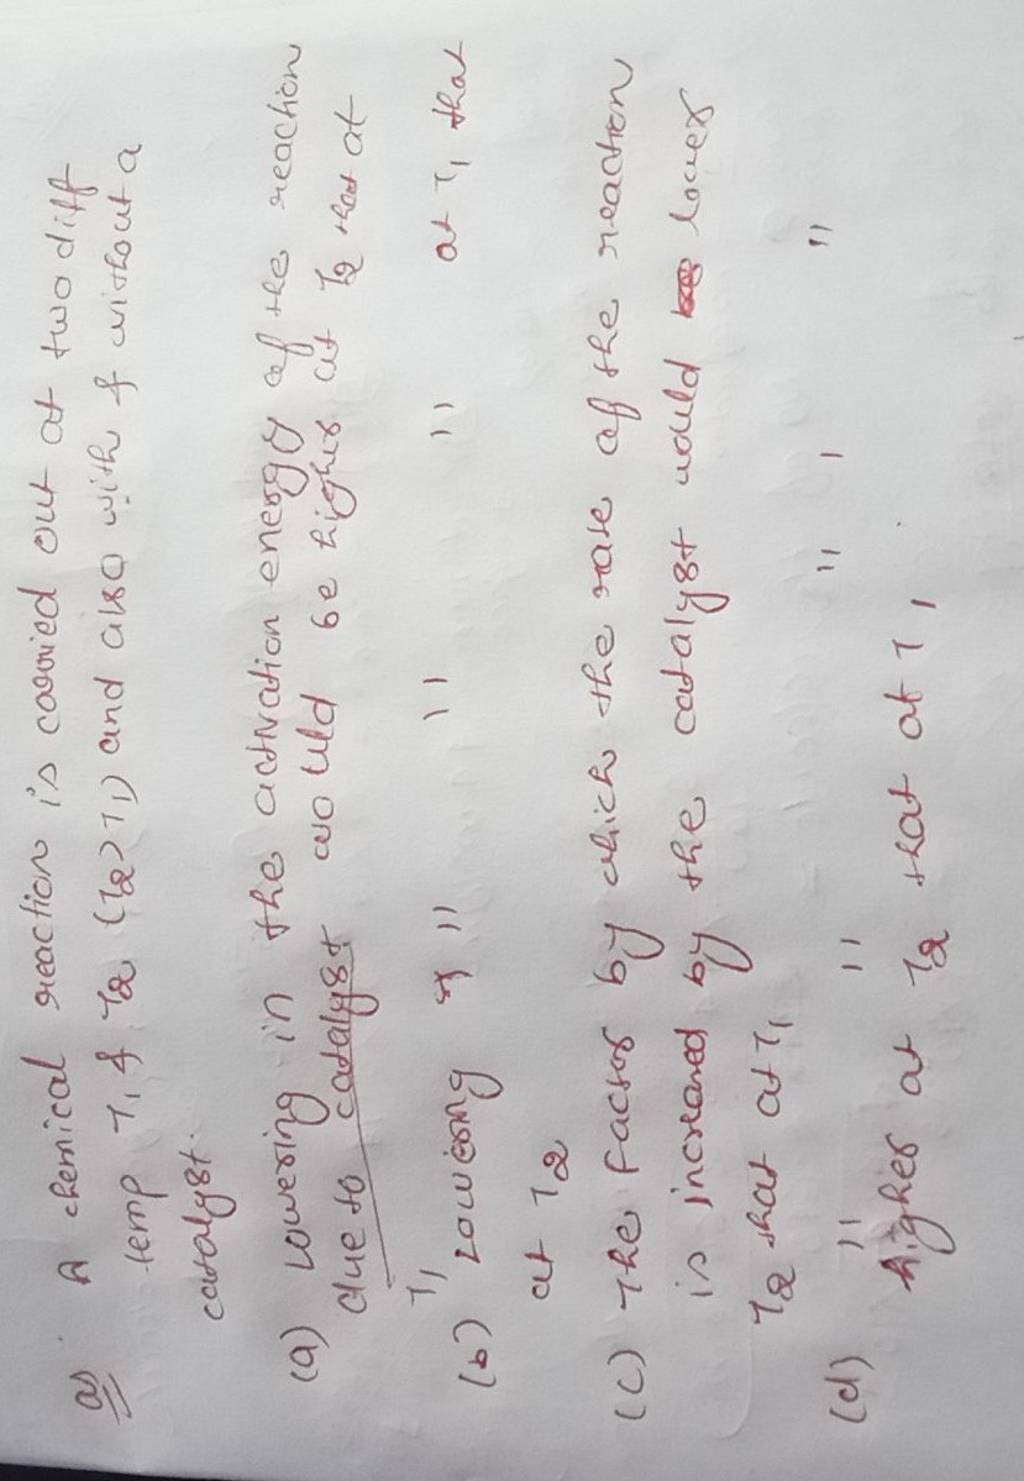 Q. A chemical reaction is carried out at two diff
temp T1 & T2 (T2>T1) and also with & without a
catalyst.
(a) Lowering in the activation energy of the reaction
due to catalyst would be higher at T2 that at
T1
(b) Lowering " " " " at T1 that
at T2
(c) The factor by which the rate of the reaction
is increased by the catalyst would lower
T2 that at T1
(d) " " " ' "
higher at T2 that at T1